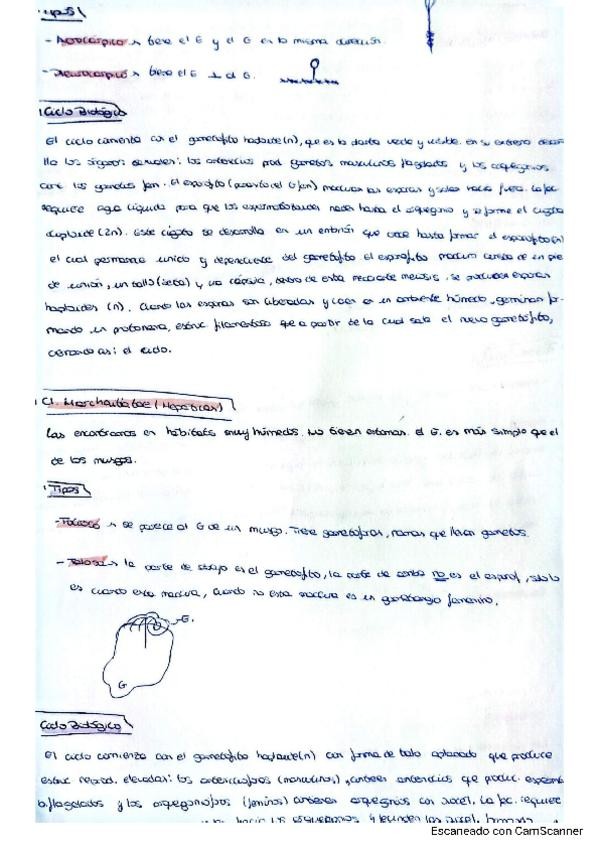 Tipos
- Acrocárpico → tiene el E y el G en la misma dirección.
- Pleurocárpico → tiene el E ⊥ al G.
Ciclo Biológico
El ciclo comienza con el gametofito haploide (n), que es la planta verde y visible. en su extremo desarro
lla los órganos sexuales: los anteridios prod gametos masculinos flagelados y los arquegonios
cont los gametos fem. El esporofito ( ) las esporas y hacia fuera. La fec.
requiere agua líquida para que los espermatozoides naden hasta el arquegonio y se forme el cigoto
diploide (2n). Este cigoto se desarrolla en un embrión que crece hasta formar el esporofito(n)
el cual permanece unido y dependiente del gametofito el esporofito maduro consta de un pie
de unión, un tallo (seta) y una cápsula, dentro de esta mediante meiosis, se producen esporas
haploides (n). Cuando las esporas son liberadas y caen en un ambiente húmedo, germinan for-
mando un protonema, estruc filamentosa que a partir de la cual sale el nuevo gametofito,
cerrando así el ciclo.
Cl. Marchantiatae (Hepáticas)
Las encontramos en hábitats muy húmedos. No tienen estomas. el G. es más simple que el
de los musgos.
Tipos
- Folioso → se parece al G de un musgo. Tiene gametóforos, ramas que llevan gametos.
- Talosa → la parte de abajo es el gametofito, la parte de arriba no es el esporof, solo lo
es cuando esta madura, cuando no esta madura es un femenino.
E.
G
Ciclo Biológico
El ciclo comienza con el gametofito haploide(n) con forma de talo aplanado que produce
estruc reprod. elevadas: los anteridióforos (masculinos), contienen anteridios que produc. esperma
b.flagelados y los arquegonióforos (feminos) contienen arquegonios con La fec. requiere
hacia los arquegonios y fecunden los
Escaneado con CamScanner